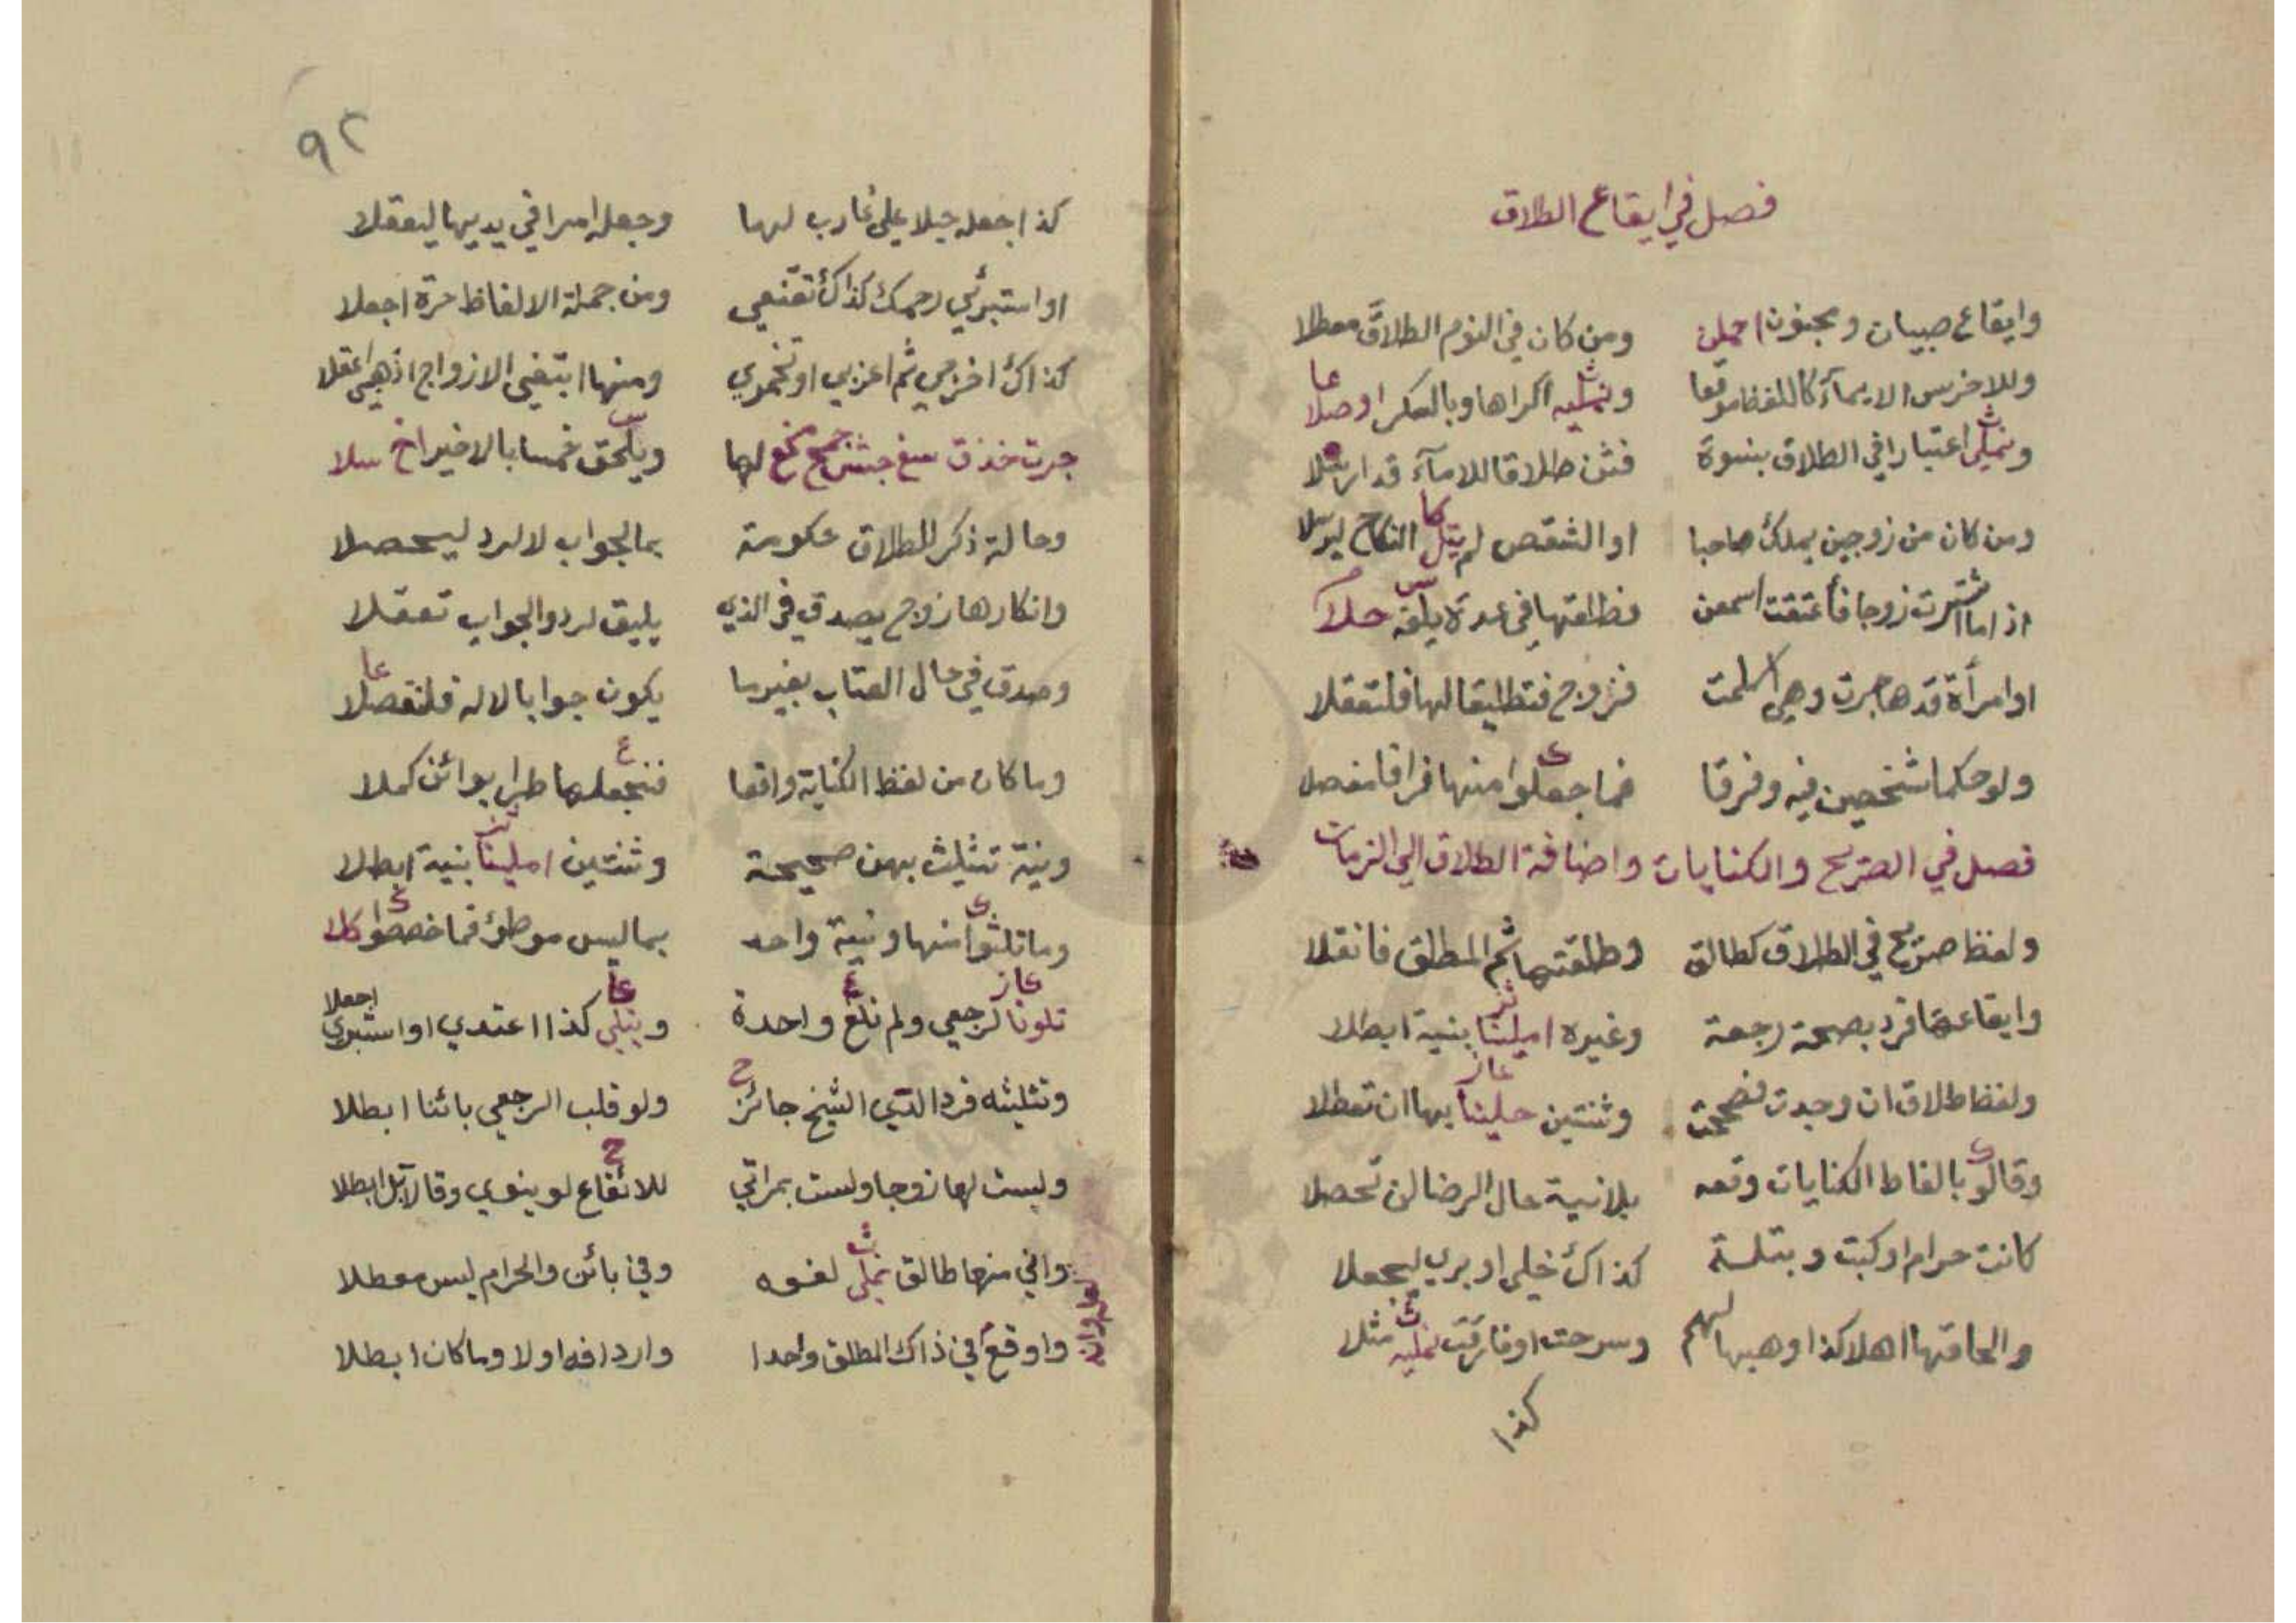 فصل في ايقاع الطلاق
وايقاع صبيان ومجنون اهملن ومن كان في النوم الطلاق معطلا
وللاخرس الايمآء كاللفظ موقعا اكراها وبالسكر اوصلا
اعتبارا في الطلاق بنسوة فثن طلاقا للامآء قد
ومن كان من زوجين يملك صاحبا او الشقص لم النكاح
اذا ما اشترت زوجا فأعتقت اسمعن فطلقها في عدة يلقه حلا
او امرأة قد هاجرت وهي اسلمت فزوج فتطليقا لها فلتعقلا
ولو حكما شخصين فيه وفرقا فما جعلوا منها فراقا مفصلا
فصل في الصريح والكنايات واضافة الطلاق الى الزمان
ولفظ صريح في الطلاق كطالق وطلقتها ثم المطلق فانقلا
وايقاعها فرد بصحة رجعة وغيره امليتا بنية ابطلا
ولفظ طلاق ان وجدت فصححت وثنتين بها ان تعطلا
وقالوا بالفاظ الكنايات وقعه بلا نية حال الرضا لن تحصلا
كانت حرام او كبت وبتلة كذاك خلي او بري ليجعلا
والحاقها اهلا كذا او هبها لهم وسرحت او فارقت مثلا
كذا
٩٢
كذا جعله حبلا على غارب لها وجعله امرا في يديها ليعقلا
او استبرئي رحمك كذاك تقنعي ومن جملة الالفاظ حرة اجعلا
كذاك اخرجي ثم اعزبي او تخمري ومنها ابتغي الازواج اذهبي اعقلا
لها ويلحق خمسا بالاخير
وحالة ذكر الطلاق حكومة بما لجواب لا لرد ليحصلا
وانكارها زوج يصدق في الذي يليق لرد والجواب تعقلا
وصدق في حال العتاب بغير ما يكون جوابا لا له فلتفصلا
وما كان من لفظ الكناية واقعا فنجعلها طرا بوائن كملا
ونية تثليث بهن صحيحة وثنتين امليتا بنية ابطلا
وما ثلثوا منها ونية واحد بما ليس موطؤ فما خصصوا كلا
تلونا لرجعي ولم نلغ واحدة كذا اعتدي او استبري اجعلا
وتثليثه فرد الذي الشيخ جائز ولو قلب الرجعي بائنا ابطلا
وليست لها زوجا ولست بمراتي للايقاع لو ينوي وقالا بل ابطلا
واني منها طالق لغوه وفي بائن والحرام ليس معطلا
واوقع في ذاك المطلق واحدا واردافه اولا وما كان ابطلا